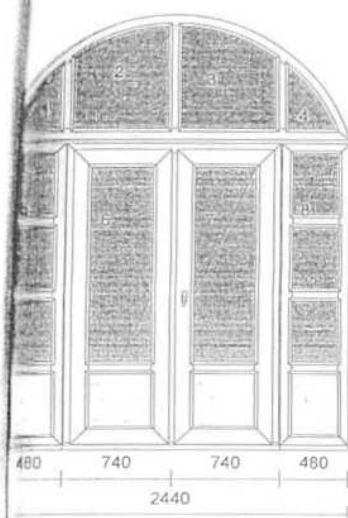 1 2 3 4
6 8
480 740 740 480
2440